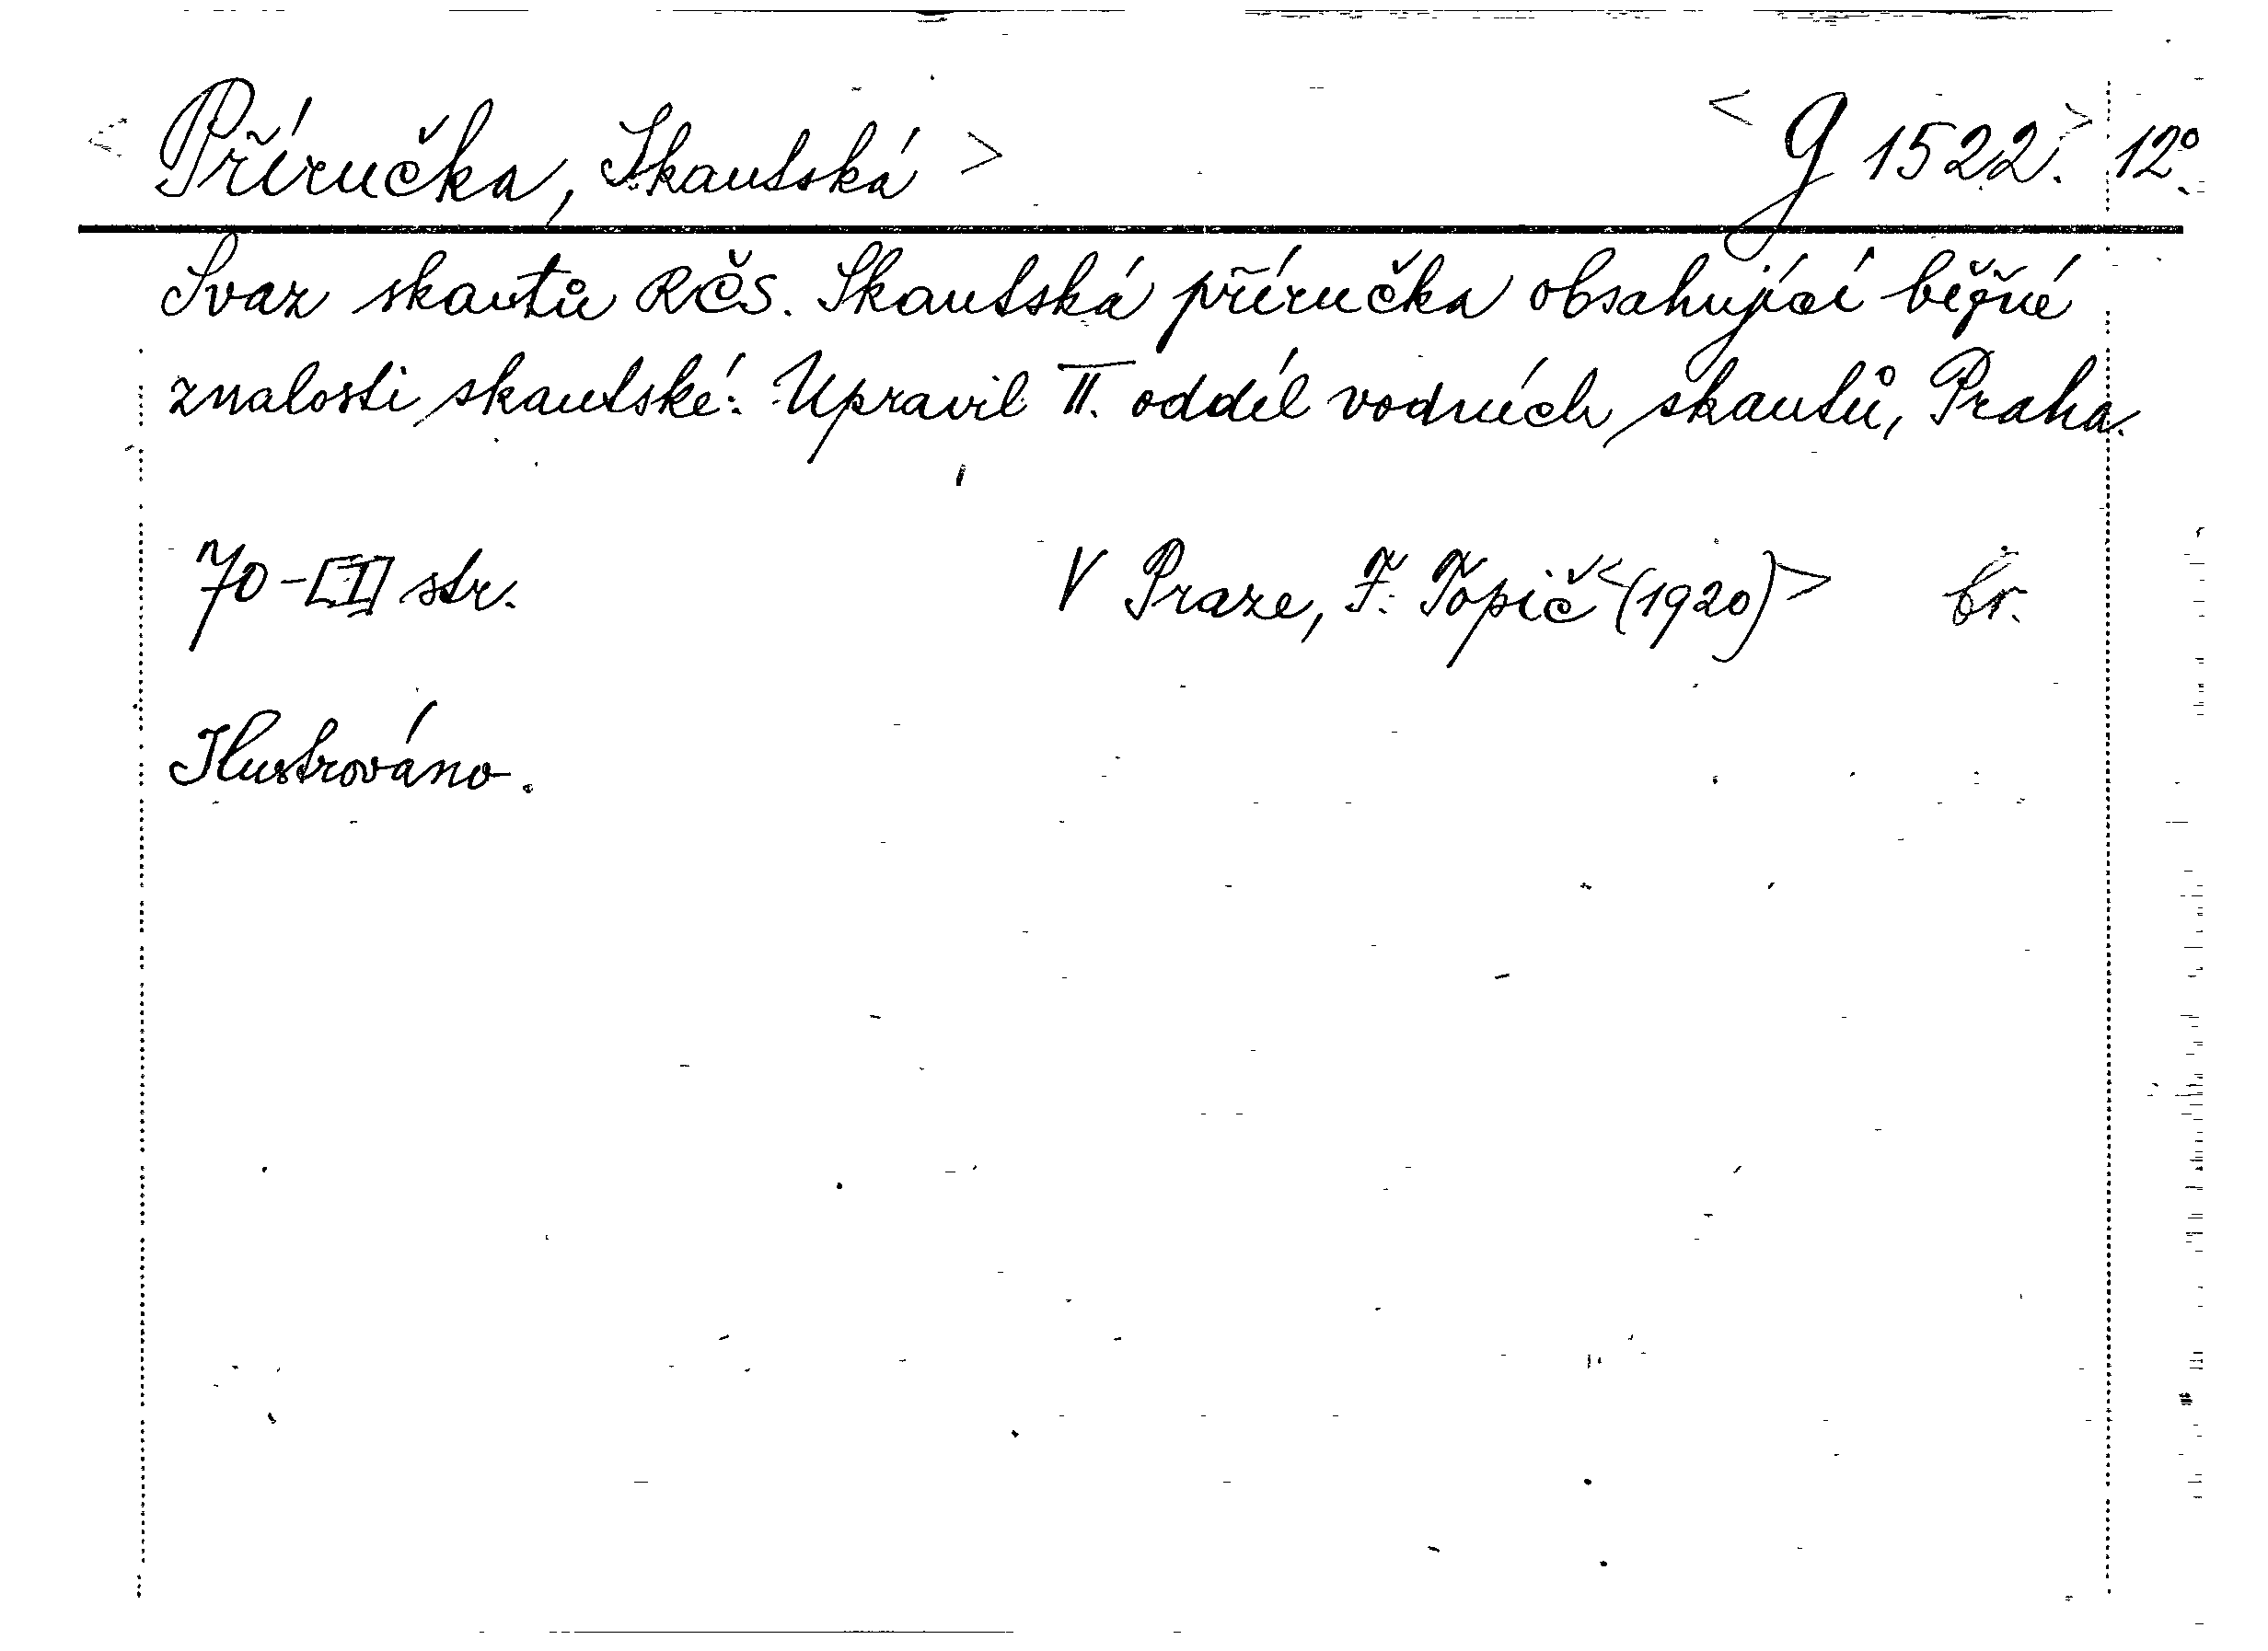 < Příručka, Skautská > < G 1522. > 12°.
Svaz skautů RČS. Skautská příručka obsahující běžné
znalosti skautské. Upravil II. oddíl vodních skautů, Praha.
70-[I] str. V Praze, F. Topič <(1920)> br.
Ilustrováno.